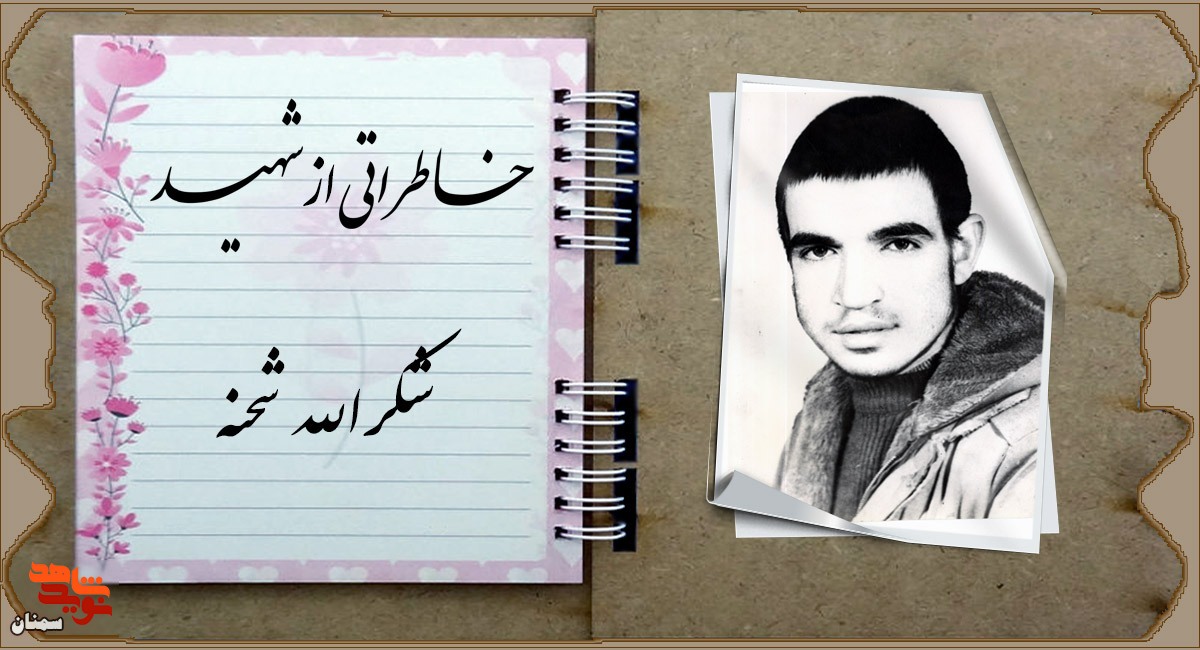 خاطراتی از شهید
شکرالله شحنه
نوید شاهد
سمنان